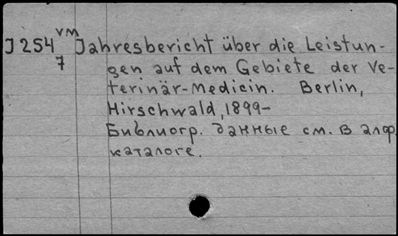 J254 VM Jahresbericht über die Leistun-
7 gen auf dem Gebiete der Ve-
terinär-Medicin. Berlin,
Hirschwald, 1899-
Библиогр. данные см. в алф.
каталоге.